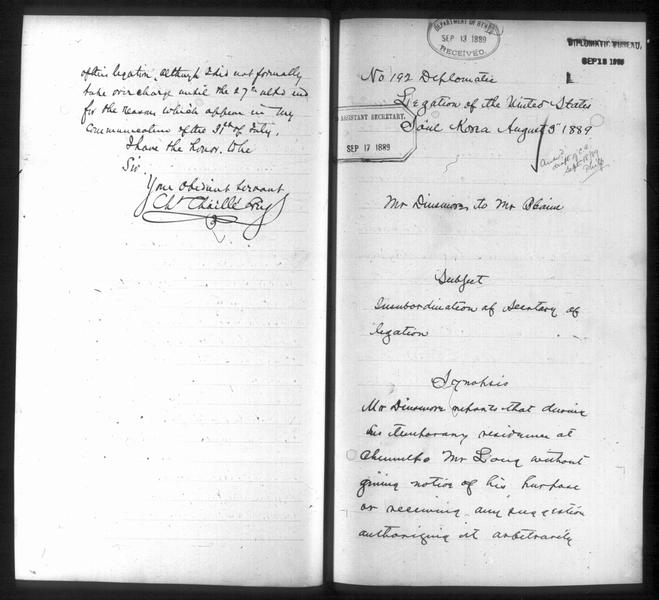 of this legation, although I did not formally
take over charge until the 27th ulto and
for the reasons which appear in my
communication of the 31st of July.
I have the honor, to be
Sir
Your obedient servant
Ch. Chaillé Long
2
DEPARTMENT OF STATE
SEP 13 1889
RECEIVED
DIPLOMATIC BUREAU,
SEP 13 1889
No 192 Diplomatic
Legation of the United States
ASSISTANT SECRETARY,
SEP 17 1889
Söul Korea August 5" 1889
Sept 18/89
Mr Dinsmore, to Mr Blaine
Subject
Insubordination of Secretary of
legation
Synopsis
Mr Dinsmore reports that during
his temporary residence at
Chemulpo Mr Long without
giving notice of his purpose
or receiving any suggestion
authorizing it arbitrarily